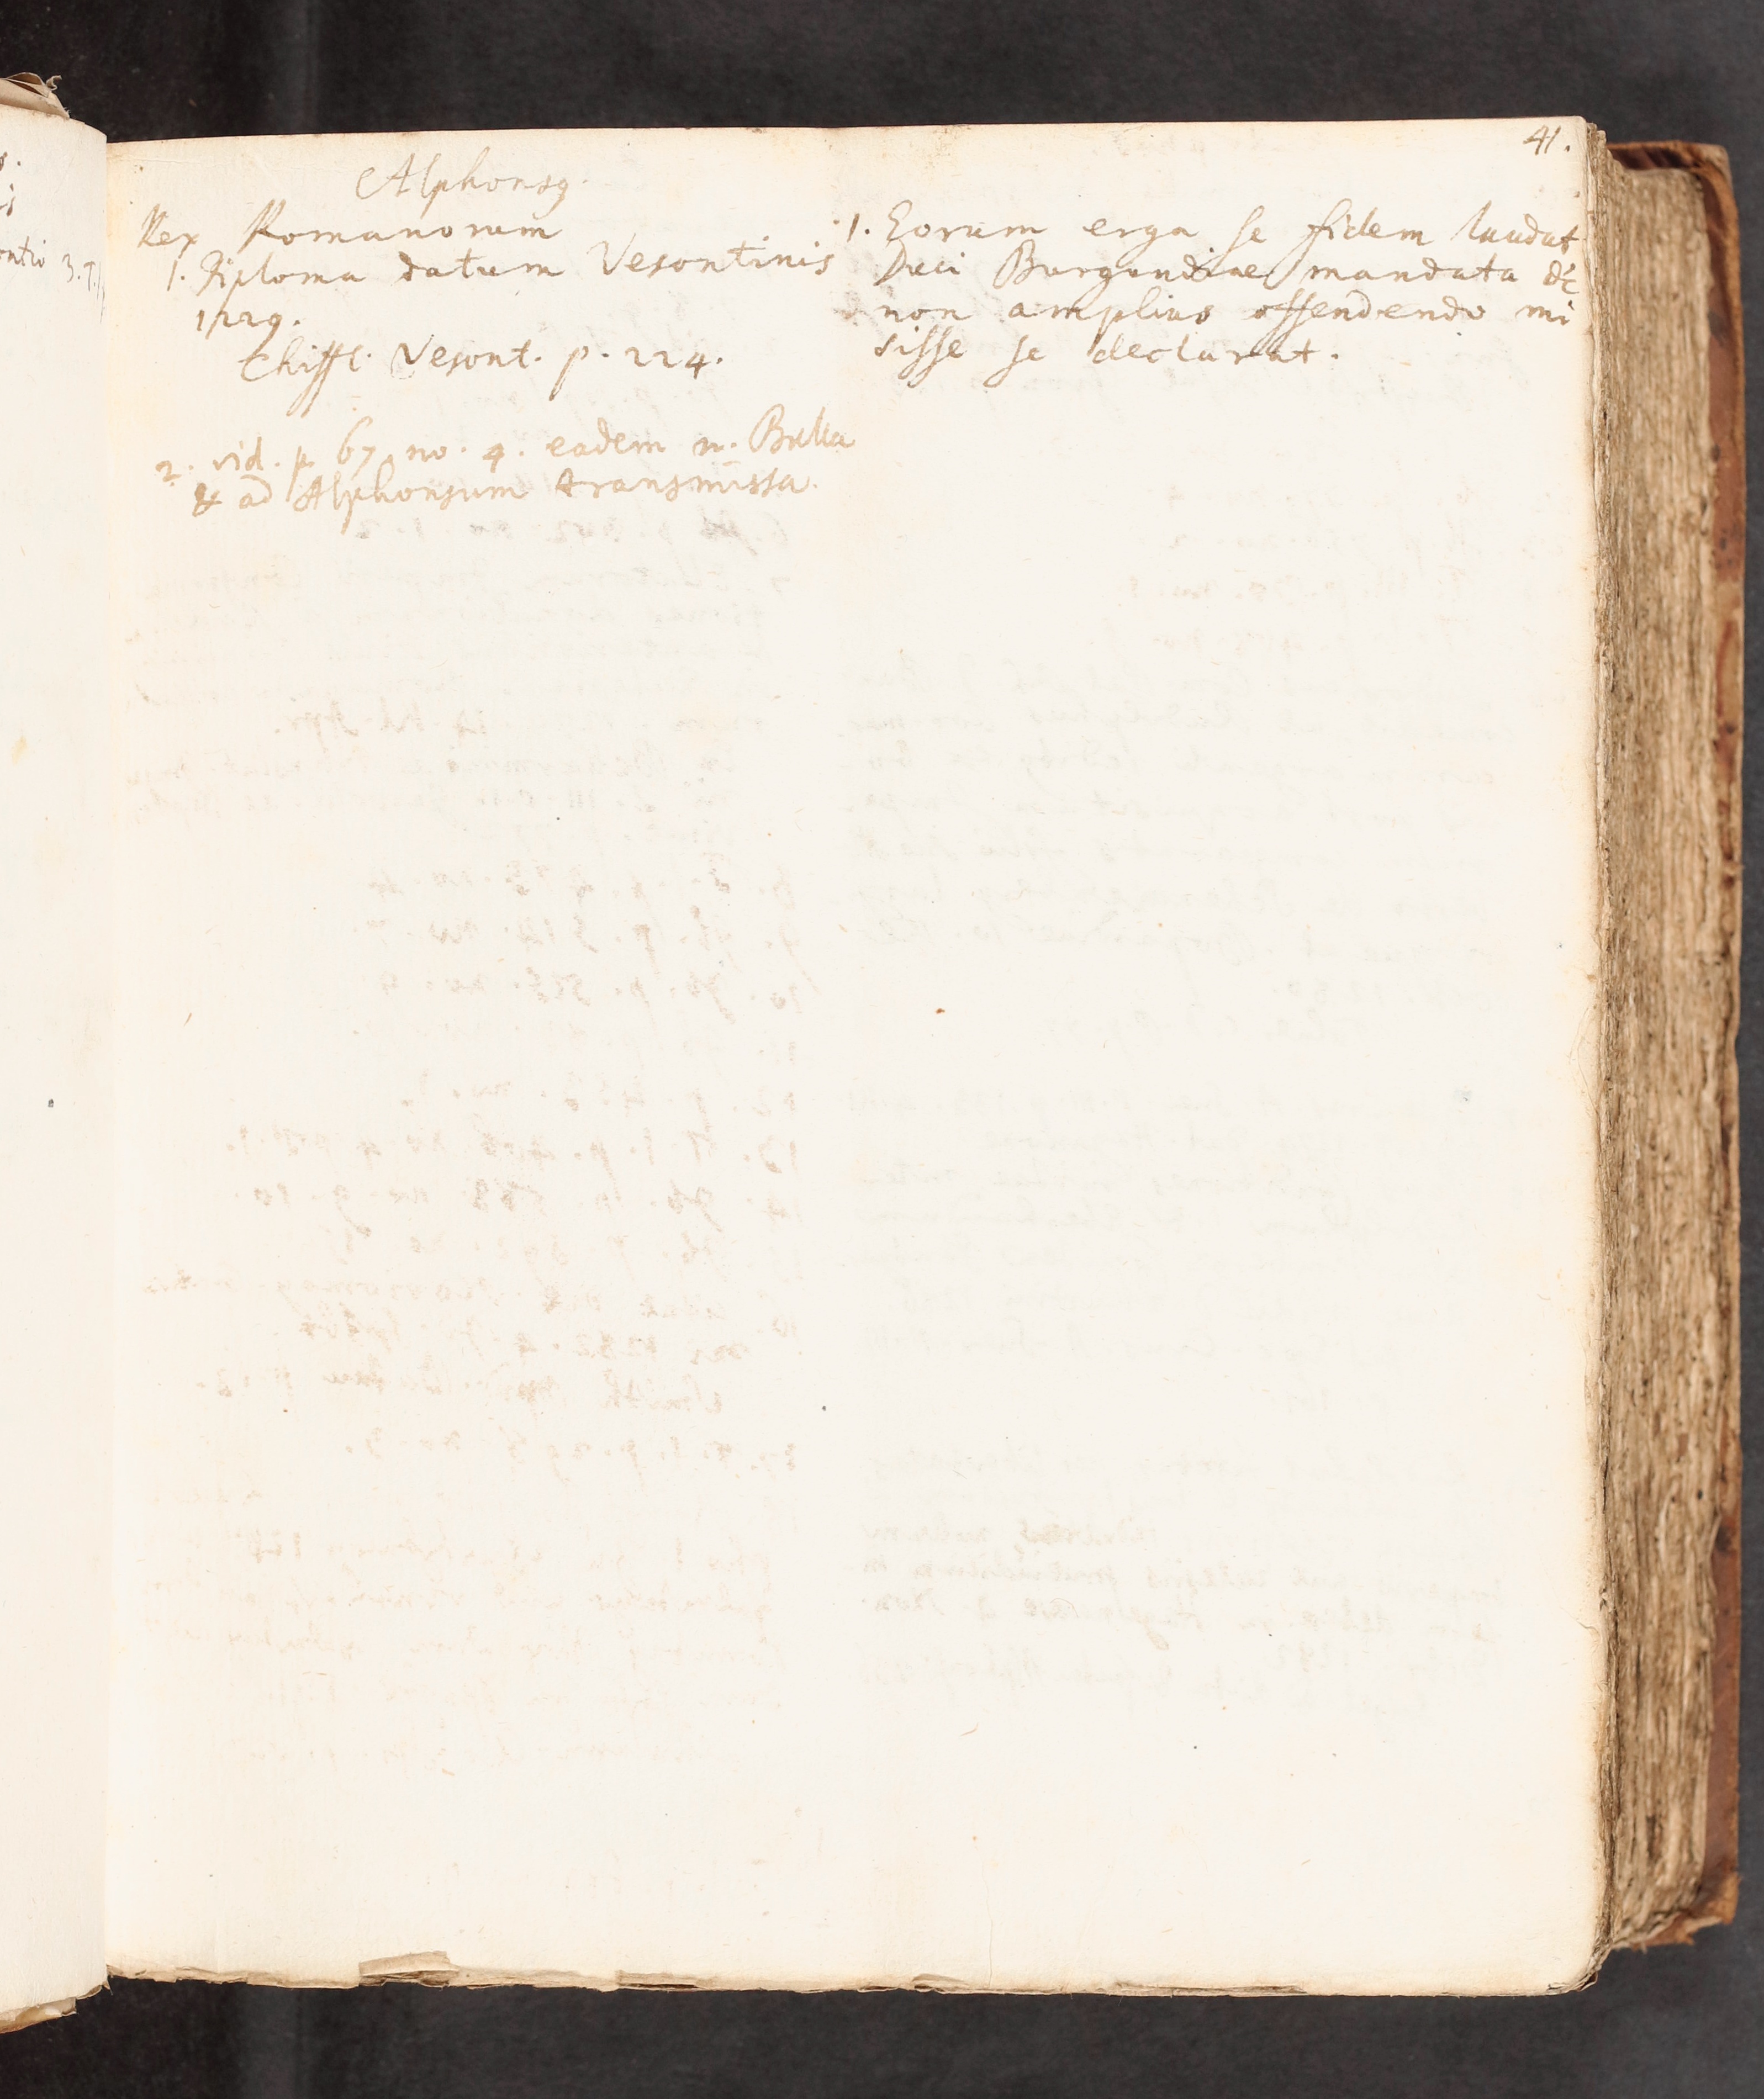 41.
Alphonsꝰ.
Rex Romanorum
1. Diploma datum Vesontinis
1229.
Chiffl. Vesont. p. 224.
2. vid. p. 67. no. 4. eadem n. Bulla
& ad Alphonsum transmissa.
1. Eorum erga se fidem laudat
Duci Burgundiae mandata de
non amplius offendendo mi
sisse se declarat.